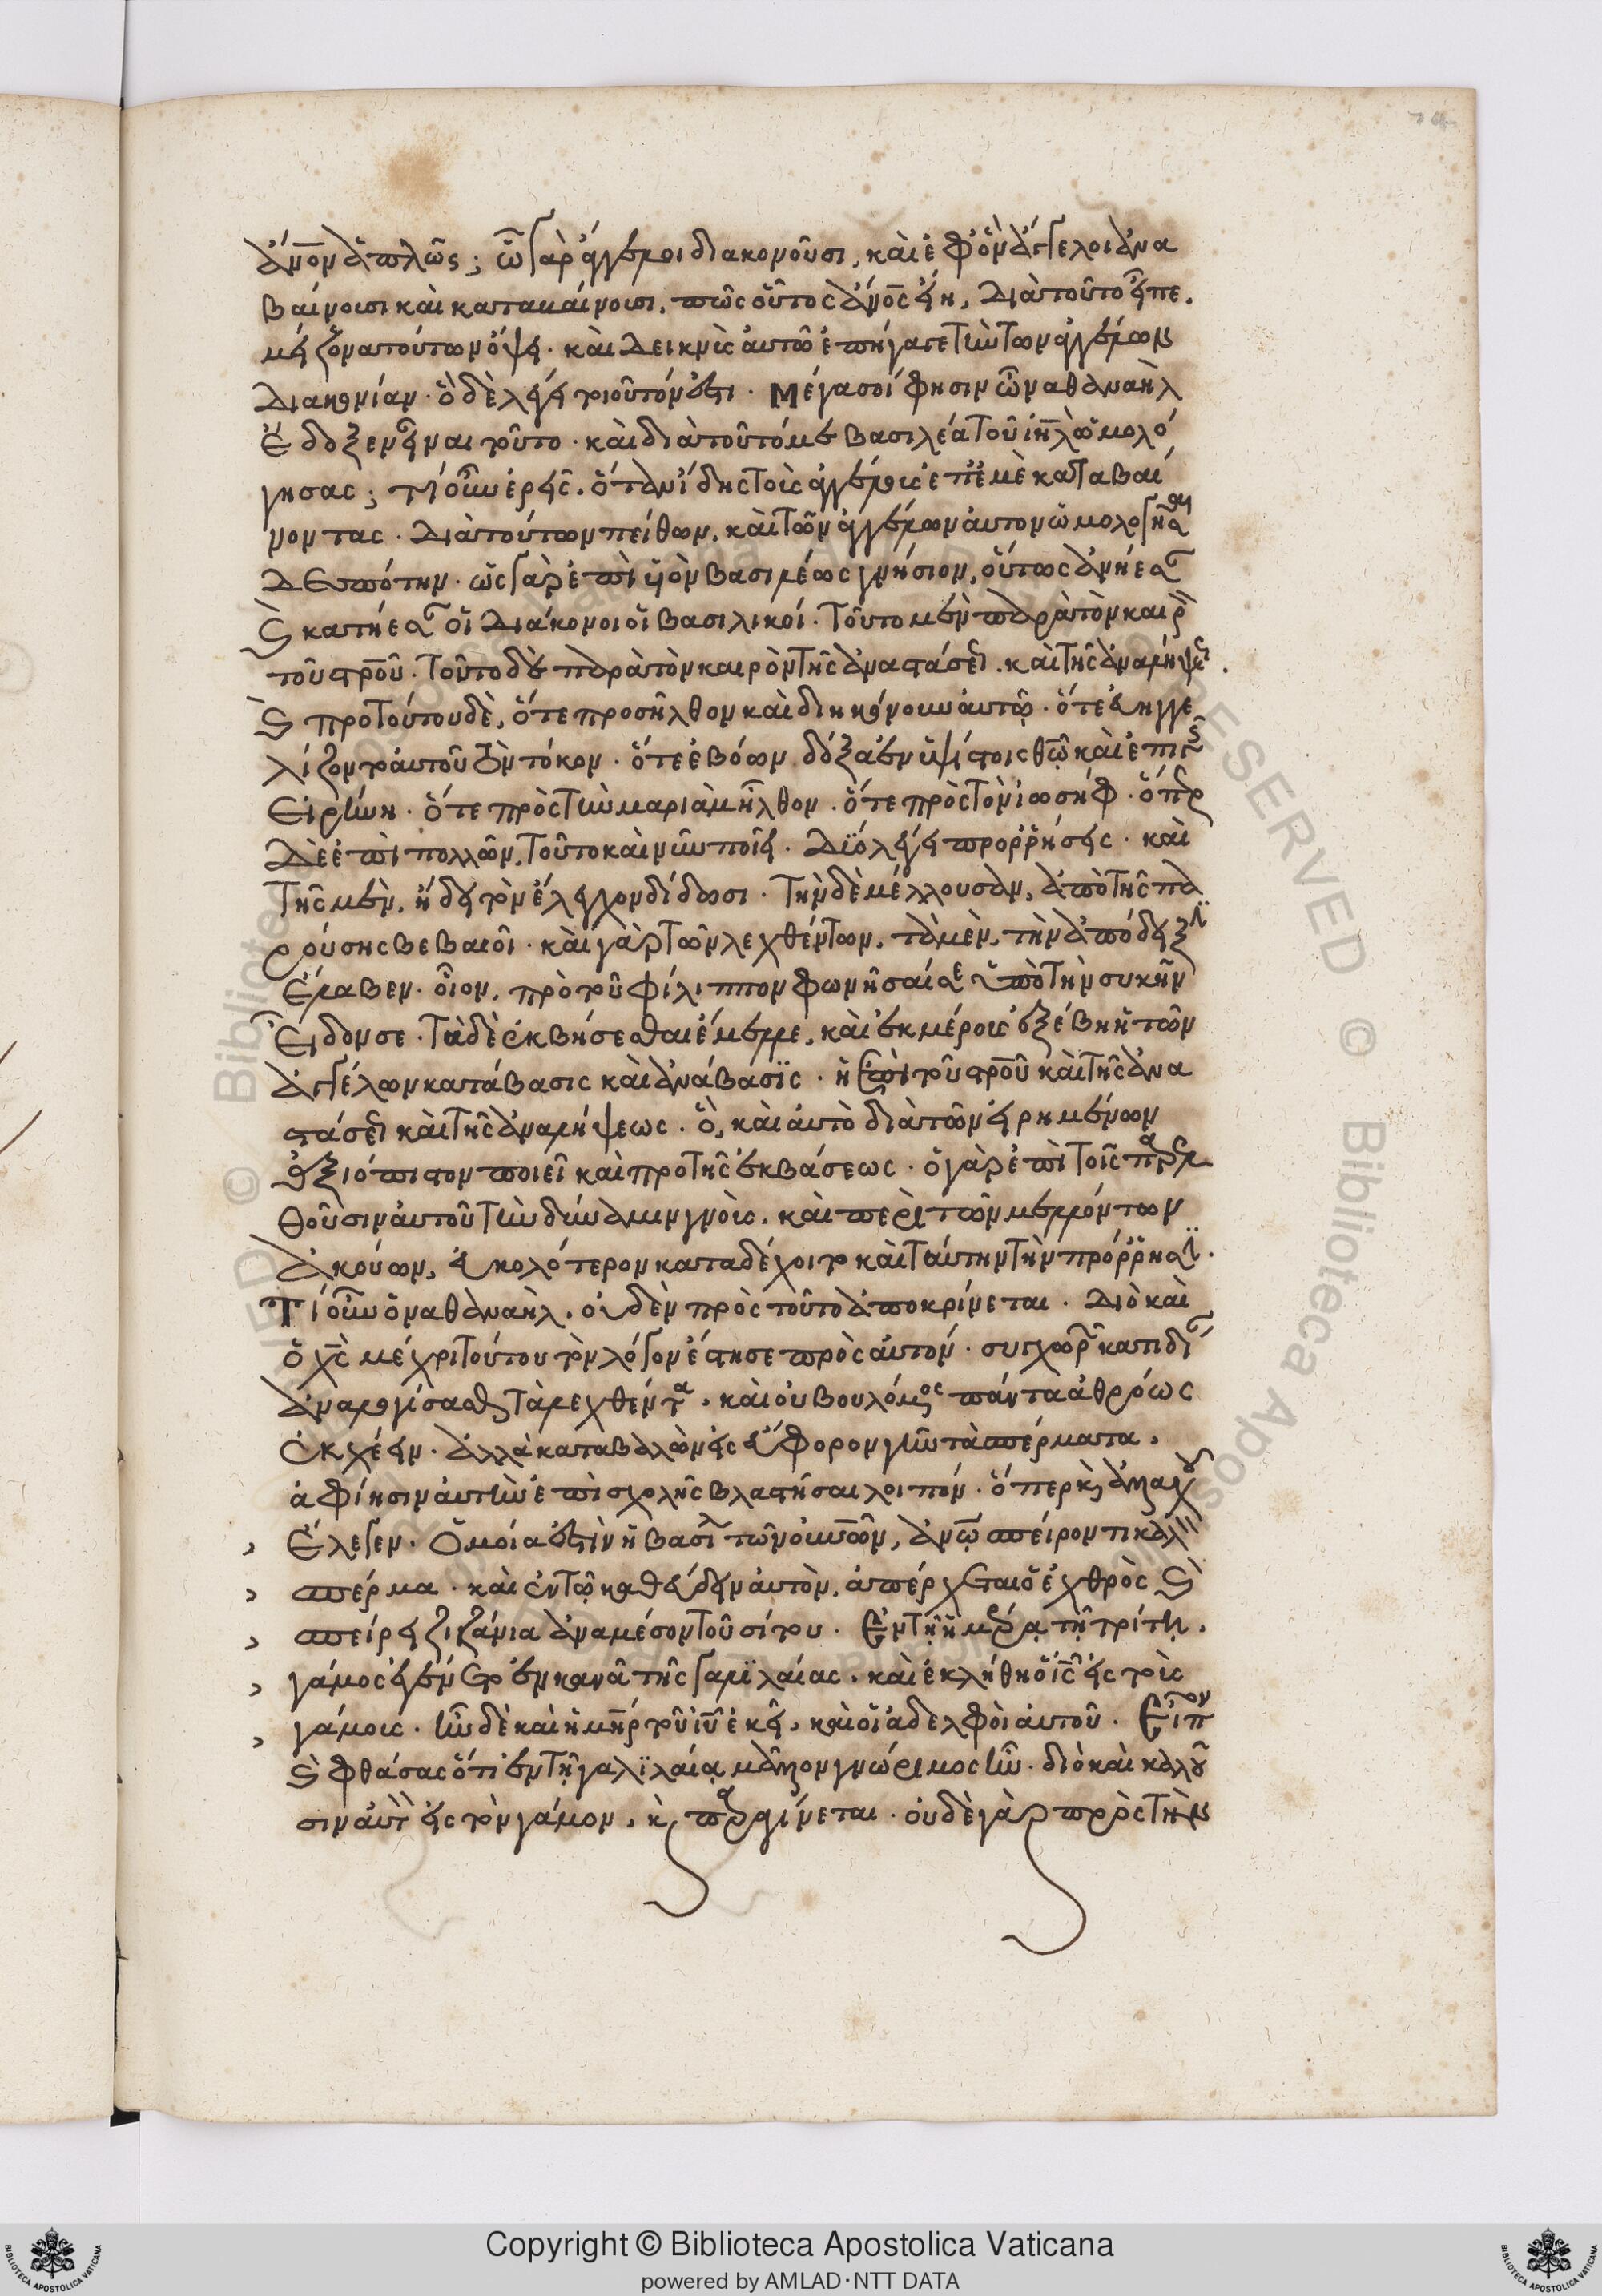 ἄνον ἁπλῶς; ᾧ γὰρ ἄγγελοι διακονοῦσι, καὶ ἐφ' ὃν ἄγγελοι ἀνα
βαίνουσι καὶ καταβαίνουσι, πῶς οὗτος ἄνος εἴη, διὰ τοῦτο εἶπε.
μείζονα τούτων ὄψει. καὶ δεικνὺς αὐτῶ ἐπήγαγε τὴν τῶν ἀγγέλων
διακονίαν. ὃ δὲ λέγει τοιοῦτόν ἐστι. Μέγα σοί φησιν ὦ ναθαναὴλ
ἔδοξεν εἶναι τοῦτο. καὶ διὰ τοῦτό με βασιλέα τοῦ ἰηλ ὡμολό
γησας; τί οὖν ἐρεῖς, ὅταν ἴδης τοὺς ἀγγέλους ἐπ' ἐμὲ καταβαί
νοντας. διὰ τούτων πείθων, καὶ τῶν ἀγγέλων αὐτὸν ὡμολογῆσαι
δεσπότην. ὡς γὰρ ἐπὶ υἱὸν βασιλέως γνήσιον, οὕτως ἀνήεσαν
καὶ κατήεσαν οἱ διάκονοι οἱ βασιλικοί. τοῦτο μὲν παρὰ τὸν καιρὸν
τοῦ σταυροῦ. τοῦτο δὲ παρὰ τὸν καιρὸν τῆς ἀναστάσεως. καὶ τῆς ἀναλήψεως.
καὶ πρὸ τούτου δὲ, ὅτε προσῆλθον καὶ διηκόνουν αὐτῷ. ὅτε εὐηγγε
λίζοντο αὐτοῦ τὸν τόκον. ὅτε ἐβόων δόξα ἐν ὑψίστοις θῶ καὶ ἐπὶ γῆς
εἰρήνη. ὅτε πρὸς τὴν μαριὰμ ἦλθον. ὅτε πρὸς τὸν ἰωσήφ. ὅπερ
δὲ ἐπὶ πολλῶν, τοῦτο καὶ νῦν ποιεῖ. δύο λέγει προρρήσεις. καὶ
τῆς μὲν, ἤδη τὸν ἔλεγχον δίδωσι. τὴν δὲ μέλλουσαν, ἀπὸ τῆς πα
ρούσης βεβαιοῖ. καὶ γὰρ τῶν λεχθέντων, τὰ μὲν, τὴν ἀπόδειξιν
ἔλαβεν. οἷον, πρὸ τοῦ φίλιππον φωνῆσαί σε ὑπὸ τὴν συκῆν
εἶδόν σε. τὰ δὲ ἐκβήσεσθαι ἔμελλε, καὶ ἐκ μέρους ἐξέβη ἡ τῶν
ἀγγέλων κατάβασις καὶ ἀνάβασις. ἡ ἐπὶ τοῦ σταυροῦ καὶ τῆς ἀνα
στάσεως καὶ τῆς ἀναλήψεως. ὃ, καὶ αὐτὸ διὰ τῶν εἰρημένων
ἀξιόπιστον ποιεῖ καὶ πρὸ τῆς ἐκβάσεως. ὁ γὰρ ἐπὶ τοῖς παρελ
θοῦσιν αὐτοῦ τὴν δύναμιν γνοὺς, καὶ περὶ τῶν μελλόντων
ἀκούων, εὐκολότερον καταδέχοιτο καὶ ταύτην τὴν πρόρρησιν.
Τί οὖν ὁ ναθαναὴλ, οὐδὲν πρὸς τοῦτο ἀποκρίνεται. διὸ καὶ
ὁ χς μέχρι τούτου τὸν λόγον ἔστησε πρὸς αὐτόν. συγχωρῶν κατιδίαν
ἀναλογίσασθαι τὰ λεχθέντα. καὶ οὐ βουλόμενος πάντα ἀθρόως
ἐκχέειν. ἀλλὰ καταβαλὼν εἰς εὔφορον γῆν τὰ σπέρματα,
ἀφίησιν αὐτὴν ἐπὶ σχολῆς βλαστῆσαι λοιπόν. ὅπερ καὶ ἀλλαχοῦ
ἔλεγεν. Ὁμοία ἐστὶν ἡ βασιλεία τῶν οὐνῶν, ἀνῶ σπείροντι καλὸν
σπέρμα. καὶ ἐν τῷ καθεύδειν αὐτὸν, ἀπέρχεται ὁ ἐχθρὸς καὶ
σπείρει ζιζάνια ἀναμέσον τοῦ σίτου. Ἐν τῇ ἡμέρᾳ τῇ τρίτῃ,
γάμος ἐγένετο ἐν κανᾶ τῆς γαλιλαίας. καὶ ἐκλήθη ὁ ἰς εἰς τοὺς
γάμους. ἦν δὲ καὶ ἡ μηρ τοῦ ἰυ ἐκεῖ, καὶ οἱ ἀδελφοὶ αὐτοῦ. Εἶπον
καὶ φθάσας ὅτι ἐν τῇ γαλιλαίᾳ μᾶλλον γνώριμος ἦν. διὸ καὶ καλοῦ
σιν αὐτὸν εἰς τὸν γάμον, καὶ παραγίνεται. οὐδὲ γὰρ πρὸς τὴν
Copyright © Biblioteca Apostolica Vaticana
powered by AMLAD·NTT DATA